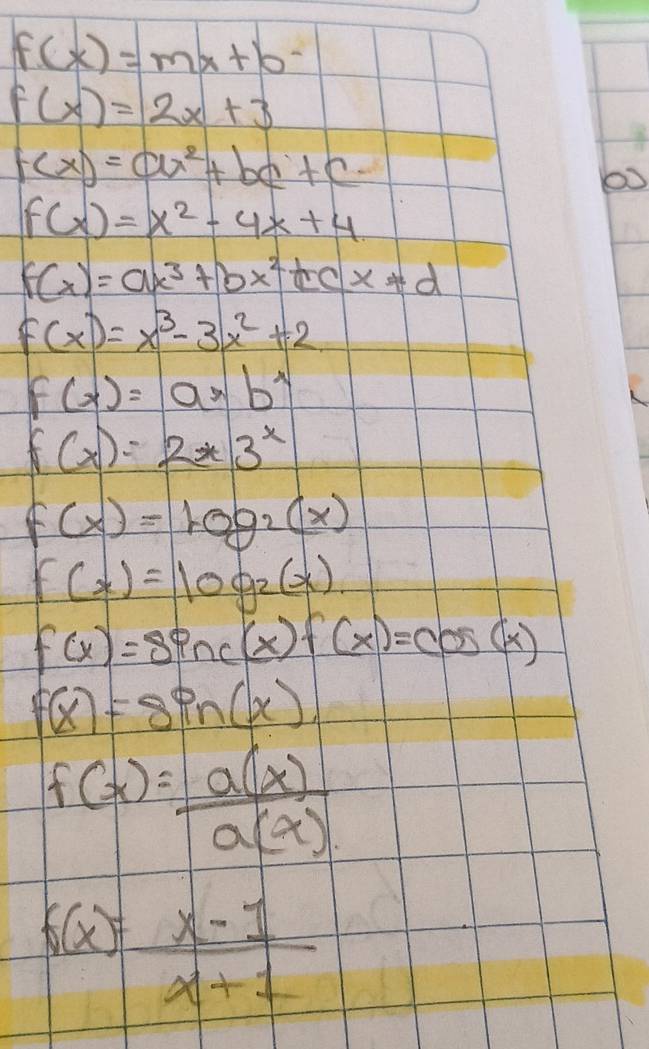 f(x)=mx+b
f(x)=2x+3
f(x)=ax²+bc+c
f(x)=x²-4x+4
f(x)=ax³+bx²+cx+d
f(x)=x³-3x²+2
f(x)=a*bˣ
f(x)=2*3ˣ
f(x)=log₂(x)
f(x)=log₂(x)
f(x)=sinc(x) f(x)=cos(x)
f(x)=sin(x)
f(x)=a(x)
a(x)
f(x)=x-1
x+1